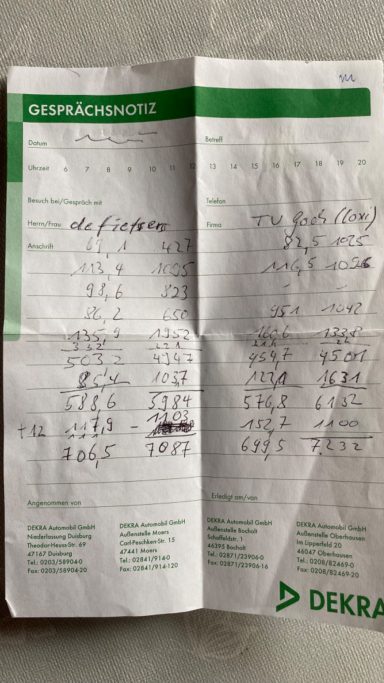 GESPRÄCHSNOTIZ
Datum
Betreff
Uhrzeit 6 7 8 9 10 11 12
13 14 15 16 17 18 19 20
Besuch bei/Gespräch mit
Telefon
Herrn/Frau de fietsen
Firma TV goch (Loxi)
Anschrift
427
82,5 1025
113,4 1095
116,5
98,6 823
86,2 650
951 1042
135,9 1352
503 2 4347
454,7 4501
85,4 1037
1631
588,6 5984
576,8 6132
+12 117,9 - 1103
152,7 1100
706,5 7087
699,5 7232
Angenommen von
Erledigt am/von
DEKRA Automobil GmbH
Niederlassung Duisburg
Theodor-Heuss-Str. 69
47167 Duisburg
Tel.: 0203/58904-0
Fax: 0203/58904-20
DEKRA Automobil GmbH
Außenstelle Moers
Carl-Peschken-Str. 15
47441 Moers
Tel.: 02841/914-0
Fax: 02841/914-120
DEKRA Automobil GmbH
Außenstelle Bocholt
Schaffeldstr. 1
46395 Bocholt
Tel.: 02871/23906-0
Fax: 02871/23906-16
DEKRA Automobil GmbH
Außenstelle Oberhausen
Im Lipperfeld 20
46047 Oberhausen
Tel.: 0208/82469-0
Fax: 0208/82469-20
DEKRA